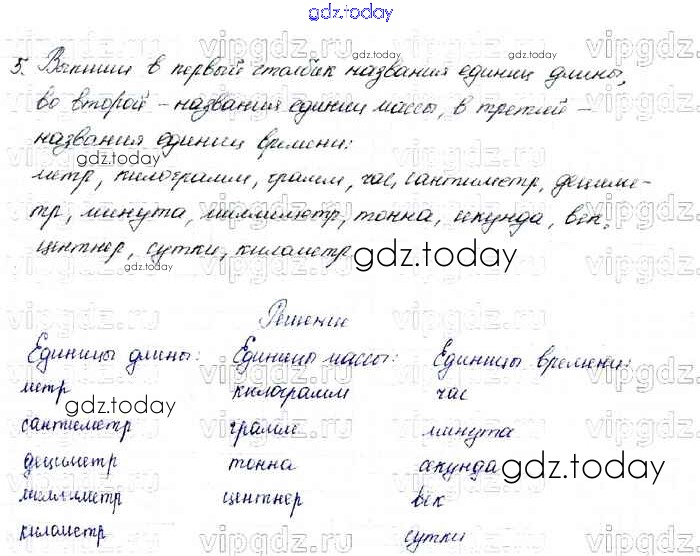 gdz.today
5. Выпиши в первый столбик названия единиц длины,
во второй – названия единиц массы, в третий –
названия единиц времени:
gdz.today
метр, килограмм, грамм, час, сантиметр, дециме-
тр, минута, миллиметр, тонна, секунда, век,
центнер, сутки, километр
gdz.today
Решение
Единицы длины: Единицы массы: Единицы времени:
метр килограмм час
gdz.today
сантиметр грамм минута
дециметр тонна секунда
gdz.today
миллиметр центнер век
километр сутки